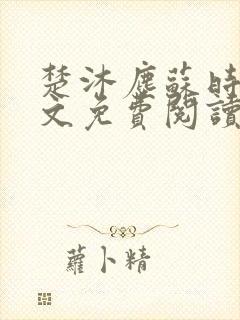 楚沐塵蘇時
文免費閱讀
蘿卜精